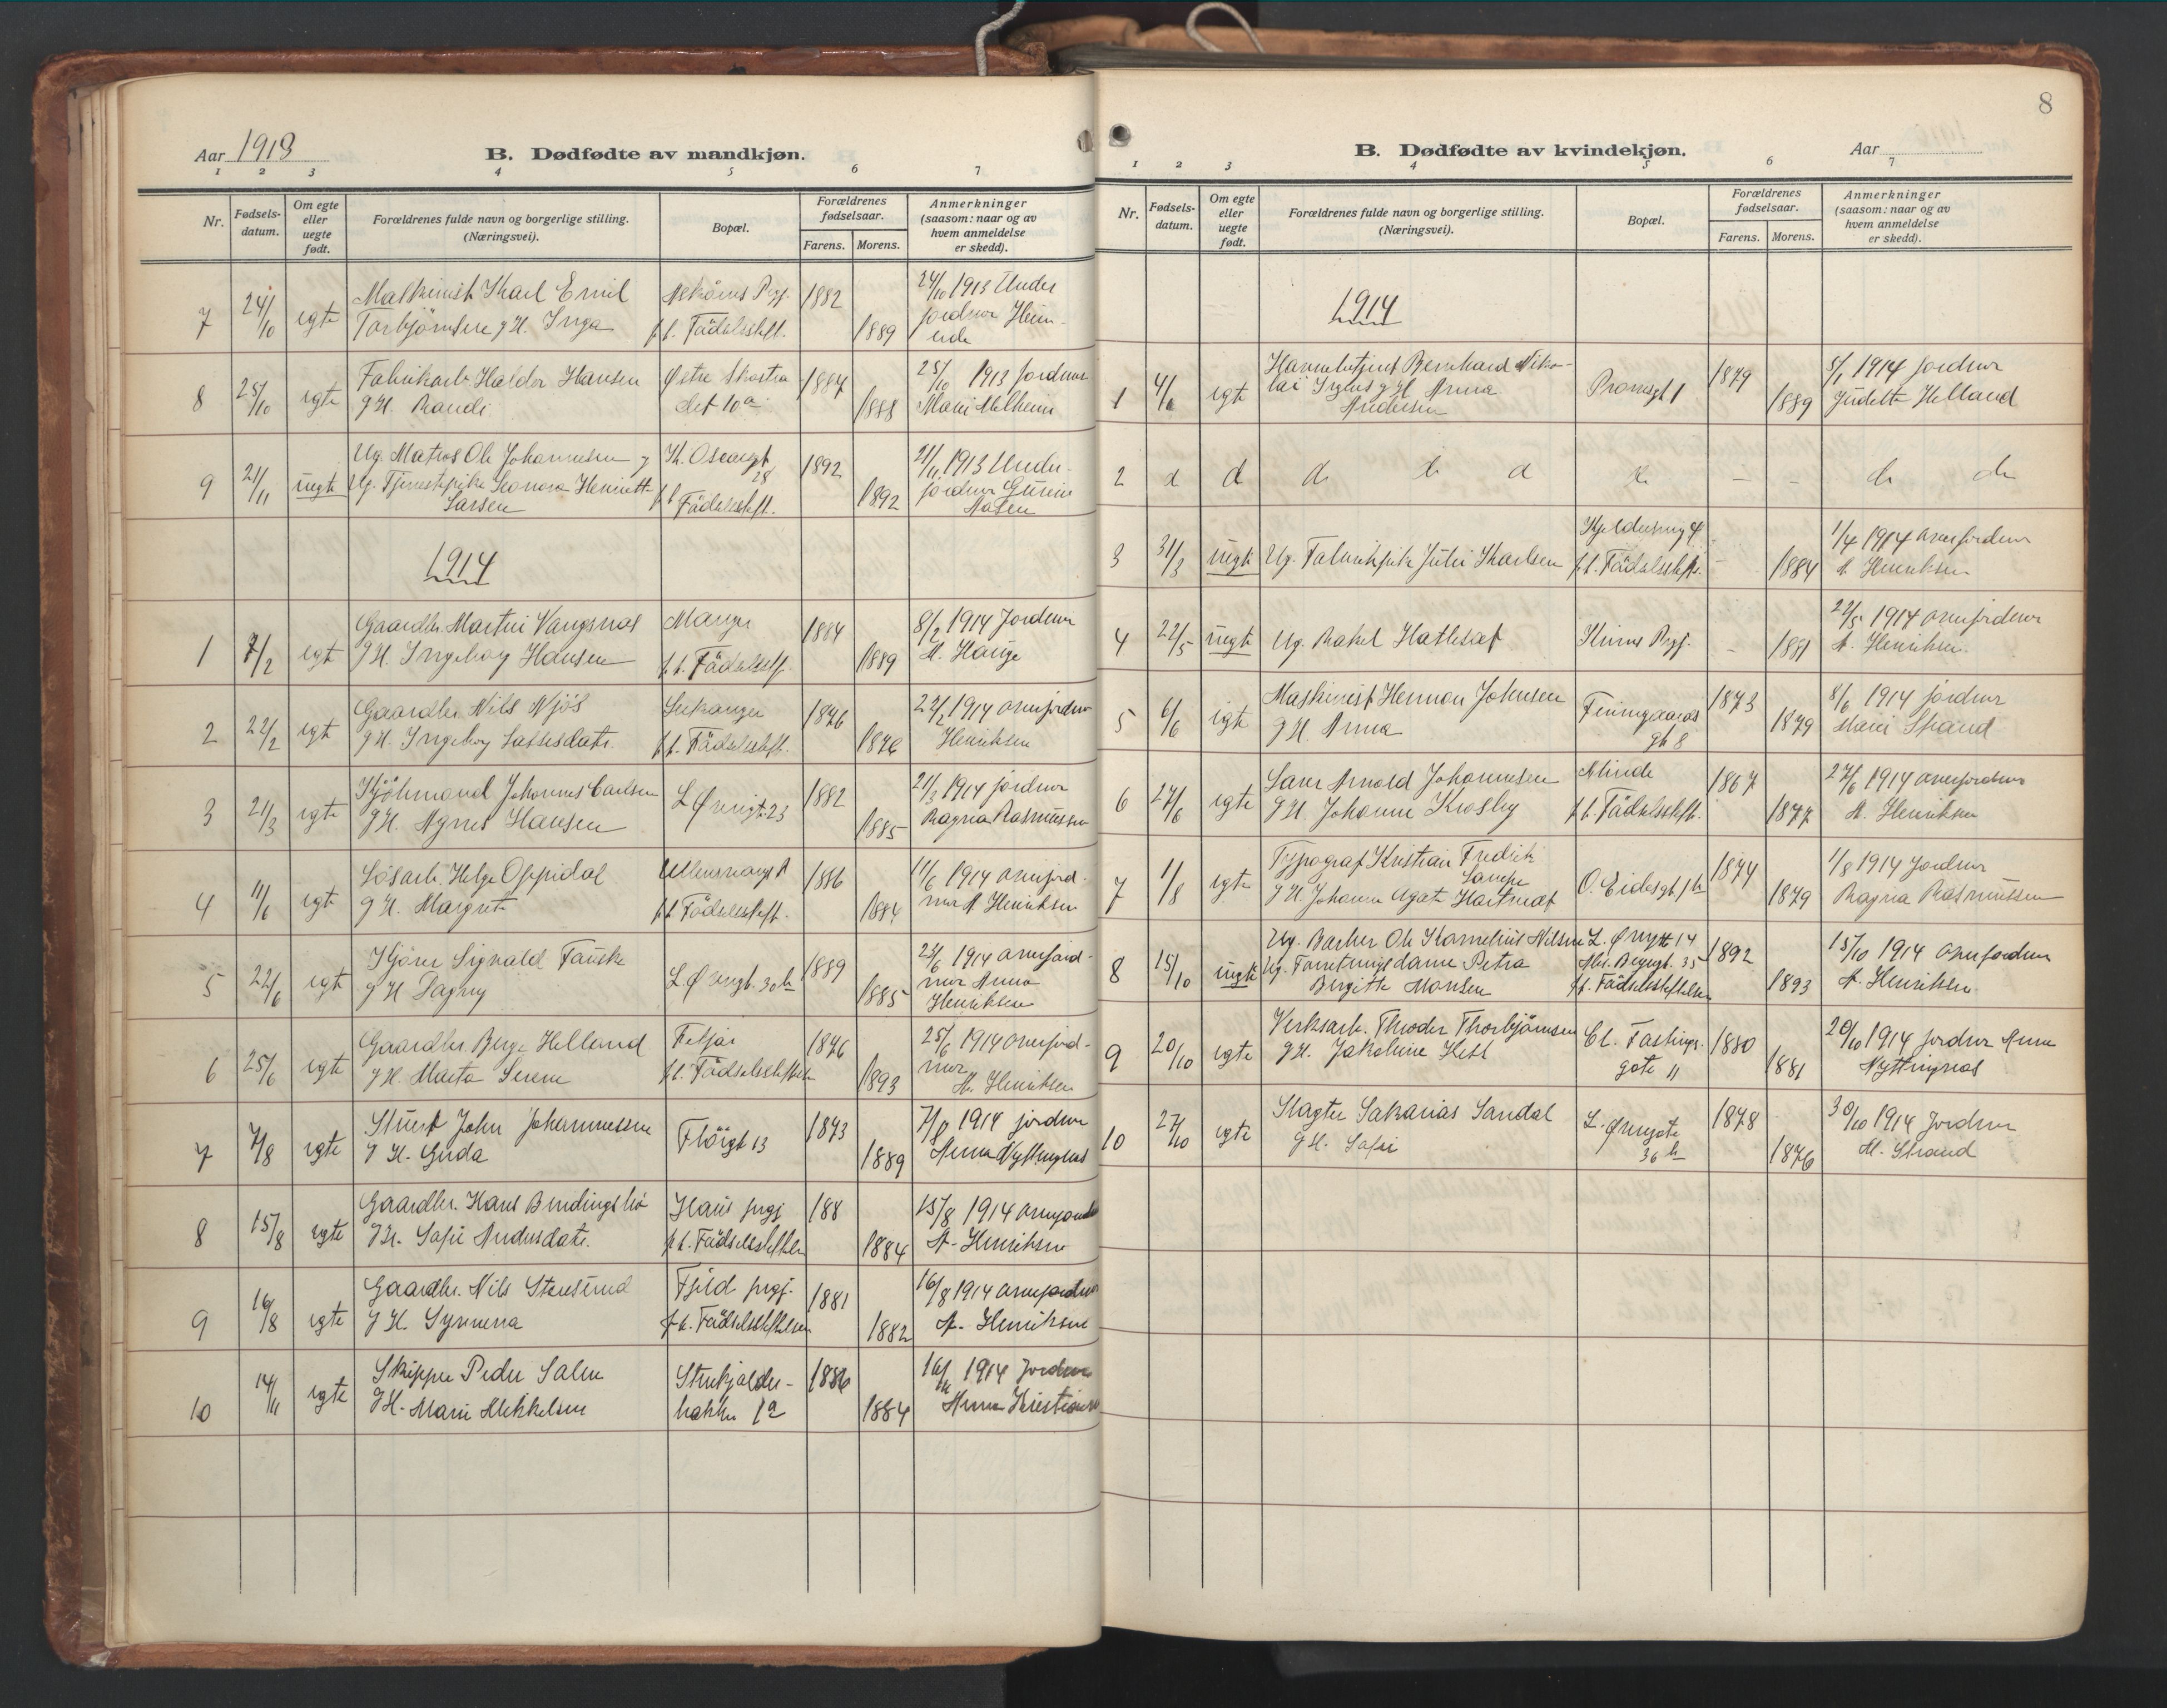 8
Aar 1913
B. Dødfødte av mandkjøn.
1 2 3 4 5 6 7
Nr.
Fødsels-datum.
Om egte eller uegte født.
Forældrenes fulde navn og borgerlige stilling. (Næringsvei).
Bopæl.
Forældrenes fødselsaar.
Farens. Morens.
Anmerkninger (saasom: naar og av hvem anmeldelse er skedd).
7 24/10 egte Maskinist Karl Emil Askøens Pgj. 1882 24/10 1913 Under
Torbjörnsen g H. Inga p.t. Födselsstift. 1889 jordmor
8 25/10 egte Fabrikarb. Haldor Hansen Østre 1884 25/10 1913 Jordmor
g H. Randi 10a 1888 Marie Melheim
9 21/11 uegte Ug. Matros Ole Johannesen g Kr. Oscarsgt 28 1892 21/11 1913 Under-
Ug. Tjenestepike Leonora Henriette p.t. 1892 jordmor
Larsen Födselsstift. Aasen
1914
1 7/2 egte Gaardbr. Martin Vangsnes Manger 1884 8/2 1914 Jordmor
g H. Ingeborg Hansen p.t. Födselsstift. 1889 M. Hauge
2 22/2 egte Gaardbr. Nils Njös Leikanger 1876 22/2 1914 overjordmor
g H. Ingeborg Lassesdatr. p.t. Födselsstift. 1876 Henriksen
3 21/3 egte Sjömand Johannes Carlsen L. Øvregt. 23 1882 21/3 1914 jordmor
g H. Agnes Hansen 1885 Ragna Rasmussen
4 11/6 egte Lösarb. Helge Oppidal Ullensvang 1886 11/6 1914 overjord-
g H. Margrete p.t. Födselsstift. 1884 mor A. Henriksen
5 22/6 egte Kjörer Sigvald Fauske L. Øvregt. 30 b 1889 23/6 1914 overjord-
g H. Dagny 1885 mor Anna
Henriksen
6 25/6 egte Gaardbr. Berge Helland Fitjar 1876 25/6 1914 overjord-
g H. Marta Serine p.t. Födselsstiftelsen 1893 mor
A. Henriksen
7 7/8 egte Stuert John Johannessen Flöigt 13 1873 7/8 1914 jordmor
g H. Gjida 1889 Anna Nyttingnes
8 15/8 egte Gaardbr. Hans Haus prgj 188 15/8 1914 overjordm
g H. Sofie Andersdatr. p.t. Födselsstiftelsen 1884 A. Henriksen
9 16/8 egte Gaardbr. Nils Steinsund Fjeld prgj. 1881 16/8 1914 overjordmor
g H. Synneva p.t. Födselsstiftelsen 1882 A. Henriksen
10 14/11 egte Skipper Peder Salen Steinkjelder- 1886 16/11 1914 Jordmor
g H. Marie Mikkelsen bakken 1a 1884 Anna Kristiansen
B. Dødfødte av kvindekjøn.
Aar
1 2 3 4 5 6 7
Nr.
Fødsels-datum.
Om egte eller uegte født.
Forældrenes fulde navn og borgerlige stilling. (Næringsvei).
Bopæl.
Forældrenes fødselsaar.
Farens. Morens.
Anmerkninger (saasom: naar og av hvem anmeldelse er skedd).
1914
1 4/1 egte Havnebetjent Bernhard Niko- 1879 5/1 1914 Jordmor
lai g H Anna 1889 Judette Helland
Andersen
2 d d d d d d - - d d
3 31/3 uegte Ug. Fabrikpike Julie Karlsen p.t. Födselsstift. - 1884 1/4 1914 overjordmor
A. Henriksen
4 22/5 uegte Ug. Rakel Hatleset Kinns Prgj. - 1881 22/5 1914 overjordmor
A. Henriksen
5 6/6 egte Maskinist Herman Johnsen Finnegaards 1873 8/6 1914 jordmor
g H. Anna gt 8 1879 Marie Strand
6 27/6 egte Laur Arnold Johannesen Minde 1867 27/6 1914 overjordmor
g H. Johanne Krosby p.t. Födselsstift. 1877 A. Henriksen
7 1/8 egte Typograf Kristian Fredrik O. Eidesgt 1b 1874 1/8 1914 Jordmor
Lampe
g H. Johanne Agate Hartvedt 1879 Ragna Rasmussen
8 15/10 uegte Ug. Barber Ole Kornelius Nilsen L. Øvregt 14 1892 15/10 1914 overjordmor
Ug. Forretningsdame Petra
Birgitte Monsen p.t. Födselsstiftelsen 1893 A. Henriksen
9 20/10 egte Verksarb. Theodor Thorbjörnsen Cl. Fastings- 1880 20/10 1914 Jordmor Anna
g H. Jakobine gate 11 1881 Nyttingnes
10 27/10 egte Slagter Sakarias Sandal L. Øvregate 1878 30/10 1914 Jordmor
g H. Sofie 36 b 1876 M. Strand